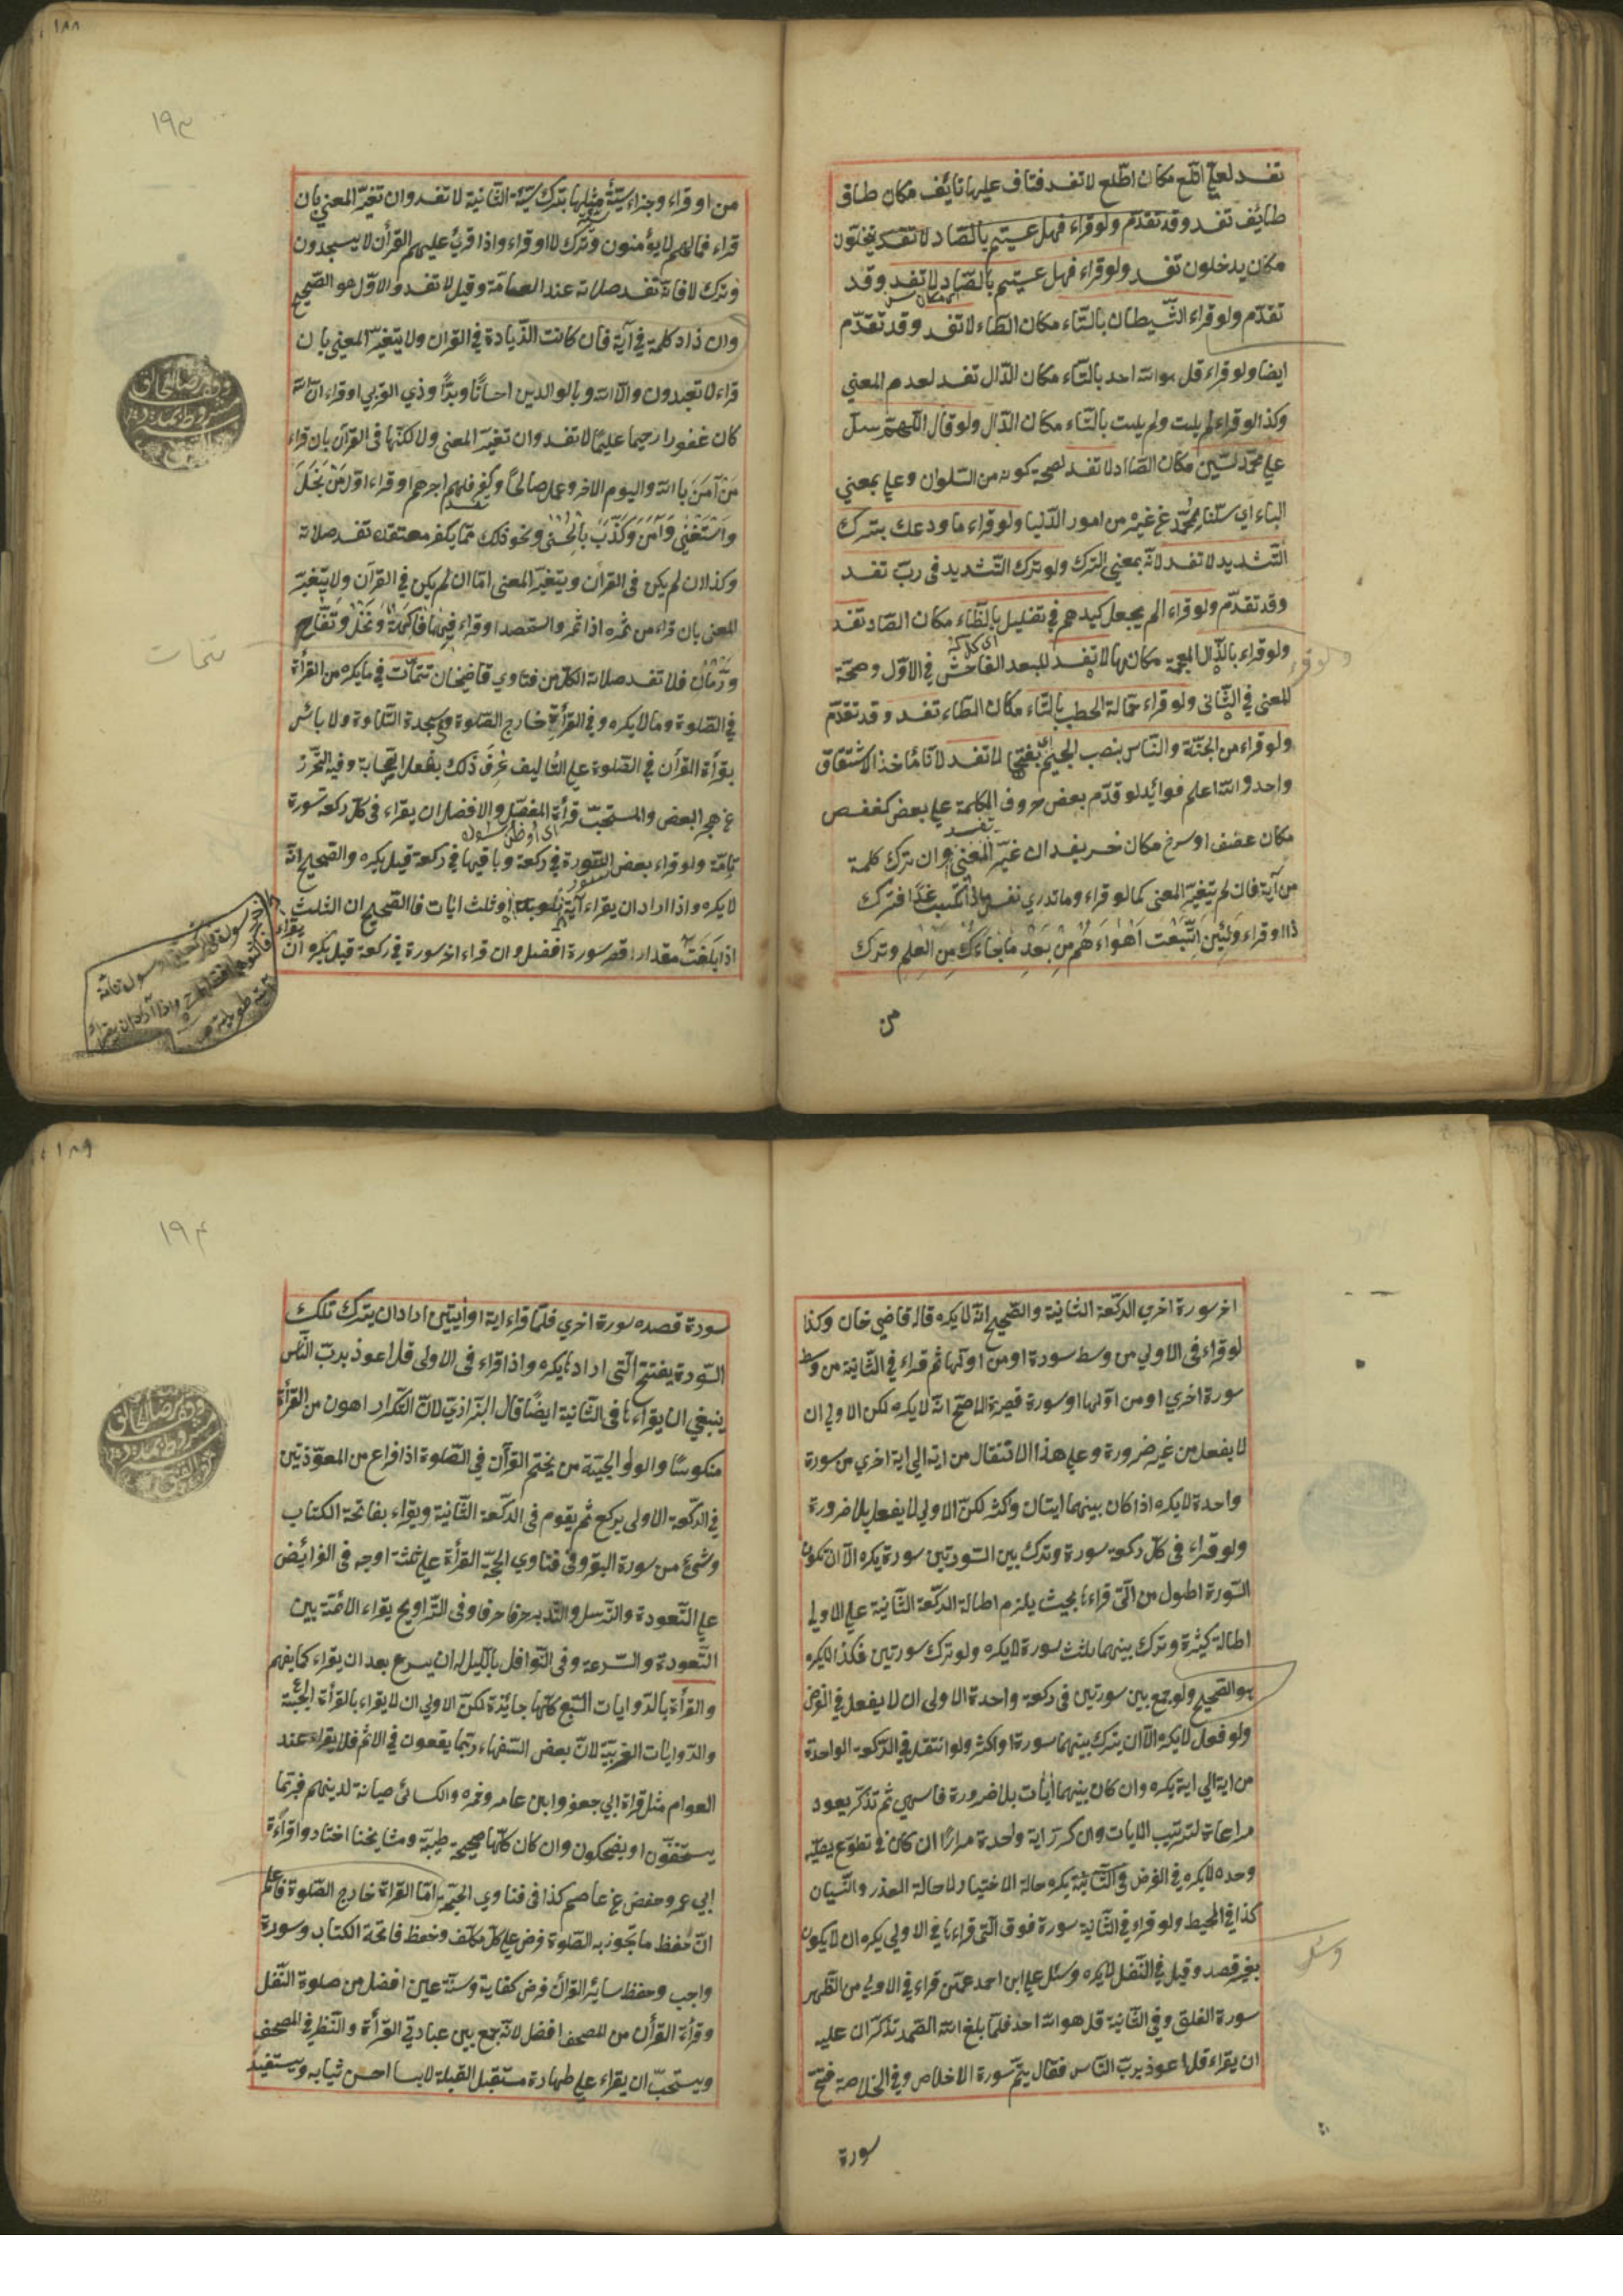 تفسد لعلي اتلع مكان اطلع لا تفسد فتاف عليها تايف مكان طاف
طايف تفسد وقد تقدم ولو قراء فهل عسيتم بالصاد لا تفسد يخلون
مكان يدخلون تفسد ولو قراء فهل عسيتم بالصاد لا تفسد وقد
تقدم ولو قراء الشيطان بالتاء مكان الطاء لا تفسد وقد تقدم
ايضا ولو قراء قل هو الله احد بالتاء مكان الدال تفسد لعدم المعني
وكذا لو قراء لم يلت ولم يلت بالتاء مكان الدال ولو قال اللهم سل
علي محمد بسين مكان الصاد لا تفسد لصحة كونه من السلوان وعلي بمعني
الباء اي سلنا بمحمد عن غيره من امور الدنيا ولو قراء ما ودعك بترك
التشديد لا تفسد لانه بمعني الترك ولو ترك التشديد في رب تفسد
وقد تقدم ولو قراء الم يجعل كيدهم في تضليل بالظاء مكان الضاد تفسد
ولو قراء بالذال المعجمة مكانها لا تفسد للبعد الفاحش في الاول وصحة
المعني في الثاني ولو قراء حمالة الحطب بالتاء مكان الطاء تفسد وقد تقدم
ولو قراء من الجنة والناس بنصب الجيم اي بفتحها لا تفسد لان مأخذ الاشتقاق
واحد والله اعلم فوائد لو قدم بعض حروف الكلمة علي بعض كعفص
مكان عصف او سرخ مكان خسر يفسد ان غير المعني وان ترك كلمة
من آية فان لم يتغير المعنى كما لو قراء وما تدري نفس ماذا تكسب غدا فترك
ذا او قراء ولئن اتبعت اهواءهم من بعد ما جاءك من العلم وترك
من
١٨٨
١٩٣
من او قراء وجزاء سيئة سيئة مثلها بترك سيئة الثانية لا تفسد وان تغير المعني بان
قراء فما لهم لا يؤمنون وترك لا او قراء واذا قرئ عليهم القرآن لا يسجدون
وترك لا فانه تفسد صلاته عند العامة وقيل لا تفسد والاول هو الصحيح
وان زاد كلمة في آية فان كانت الزيادة في القران ولا يتغير المعني بان
قراء لا تعبدون الا الله وبالوالدين احسانا وبرا وذي القربي او قراء ان الله
كان غفورا رحيما عليما لا تفسد وان تغير المعنى ولا كنها في القرآن بان قراء
من آمن بالله واليوم الاخر وعمل صالحا وكفر فلهم اجرهم او قراء اول من بخل
واستغنى وآمن وكذب بالحسنى ونحو ذلك مما يكفر معتقده تفسد صلاته
وكذا ان لم يكن في القرآن ويتغير المعنى اما ان لم يكن في القرآن ولا يتغير
المعنى بان قراء من ثمره اذا اثمر واستحصد او قراء فيهما فاكهة ونخل وتفاح
ورمان فلا تفسد صلاته الكل من فتاوي قاضيخان تتمات في ما يكره من القرأة
في الصلوة وما لا يكره وفي القرأة خارج الصلوة وسجدة التلاوة ولا بائس
بقرأة القرآن في الصلوة علي التأليف عرف ذلك بفعل الصحابة وفيه التحرز
عن هجر البعض والمستحب قرأة المفصل والافضل ان يقراء في كل ركعة سورة
تامة ولو قراء بعض السورة في ركعة وباقيها في ركعة قيل يكره والصحيح انه
لا يكره واذا اراد ان يقراء آية طويلة او ثلث ايات فا الصحيح ان الثلث
اذا بلغت مقدار اقصر سورة افضل وان قراء اخر سورة في ركعة قيل يكره ان
تتمات
١٨٩
١٩٤
اخر سورة اخري الركعة الثانية والصحيح انه لا يكره قاله قاضي خان وكذا
لو قراء في الاولي من وسط سورة او من اولها ثم قراء في الثانية من وسط
سورة اخري او من اولها او سورة قصيرة الاصح انه لا يكره لكن الاولي ان
لا يفعل من غير ضرورة وعلي هذا الانتقال من اية الي اية اخري من سورة
واحدة لا يكره اذا كان بينهما ايتان واكثر لكن الاولي لا يفعل بلا ضرورة
ولو قراء في كل ركعة سورة وترك بين السورتين سورة يكره الا ان تكون
السورة اطول من التي قراءها بحيث يلزم اطالة الركعة الثانية علي الاولي
اطالة كثيرة وترك بينهما ثلث سورة لا يكره ولو ترك سورتين فكذا لا يكره
هو الصحيح ولو جمع بين سورتين في ركعة واحدة الاولى ان لا يفعل في الفرض
ولو فعل لا يكره الا ان يترك بينهما سورة او اكثر ولو انتقل في الركعة الواحدة
من اية الي اية يكره وان كان بينهما ايات بلا ضرورة فا سهي ثم تذكر يعود
مراعات لترتيب الايات وان كرر اية واحدة مرارا ان كان في تطوع يصليه
وحده لا يكره في الفرض في الثانية يكره حالة الاختيار لا حالة العذر والنسيان
كذا في المحيط ولو قراء في الثانية سورة فوق التي قراءها في الاولي يكره ان لا يكون
بغير قصد وقيل في النفل لا يكره وسئل علي ابن احمد عمن قراء في الاولي من الظهر
سورة الفلق وفي الثانية قل هو الله احد فلما بلغ الله الصمد تذكر ان عليه
ان يقراء قل اعوذ برب الناس فقال يتم سورة الاخلاص وفي الخلاصة فتح
سورة
سورة قصده سورة اخري فلما قراء اية او ايتين اراد ان يترك تلك
السورة يفتتح التي ارادها يكره واذا قراء في الاولى قل اعوذ برب الناس
ينبغي ان يقراءها في الثانية ايضا قال البزازي لان التكرار اهون من القرأة
منكوسا والولوالجية من يختم القرآن في الصلوة اذا فرغ من المعوذتين
في الركعة الاولى يركع ثم يقوم في الركعة الثانية ويقراء بفاتحة الكتاب
وشئ من سورة البقرة وفي فتاوي الحجة القرأة علي ثلثة اوجه في الفرائض
علي التعودة والترسل والتدبر حرفا حرفا وفي التراويح يقراء الائمة بين
التعودة والسرعة وفي النوافل بالليل له ان يسرع بعد ان يقراء كما يفهم
والقرأة بالروايات السبع كلها جائزة لكن الاولي ان لا يقراء بالقرأة العجيبة
والروايات الغريبة لان بعض السفهاء ربما يقعون في الاثم فلا يقراء عند
العوام مثل قراة ابي جعفر وابن عامر وحمزه والكسائي صيانة لدينهم فربما
يستخفون او يضحكون وان كان كلها صحيحة طيبة ومشايخنا اختاروا قرأة
ابي عمرو وحفص عن عاصم كذا في فتاوي الحجة اما القراة خارج الصلوة فاعلم
ان حفظ ما تجوز به الصلوة فرض علي كل مكلف وحفظ فاتحة الكتاب وسورة
واجب وحفظ سائر القران فرض كفاية وسنة عين افضل من صلوة النفل
وقرأة القرآن من المصحف افضل لانه جمع بين عبادتي القرأة والنظر في المصحف
ويستحب ان يقراء علي طهارة مستقبل القبلة لابسا احسن ثيابه ويستعيذ